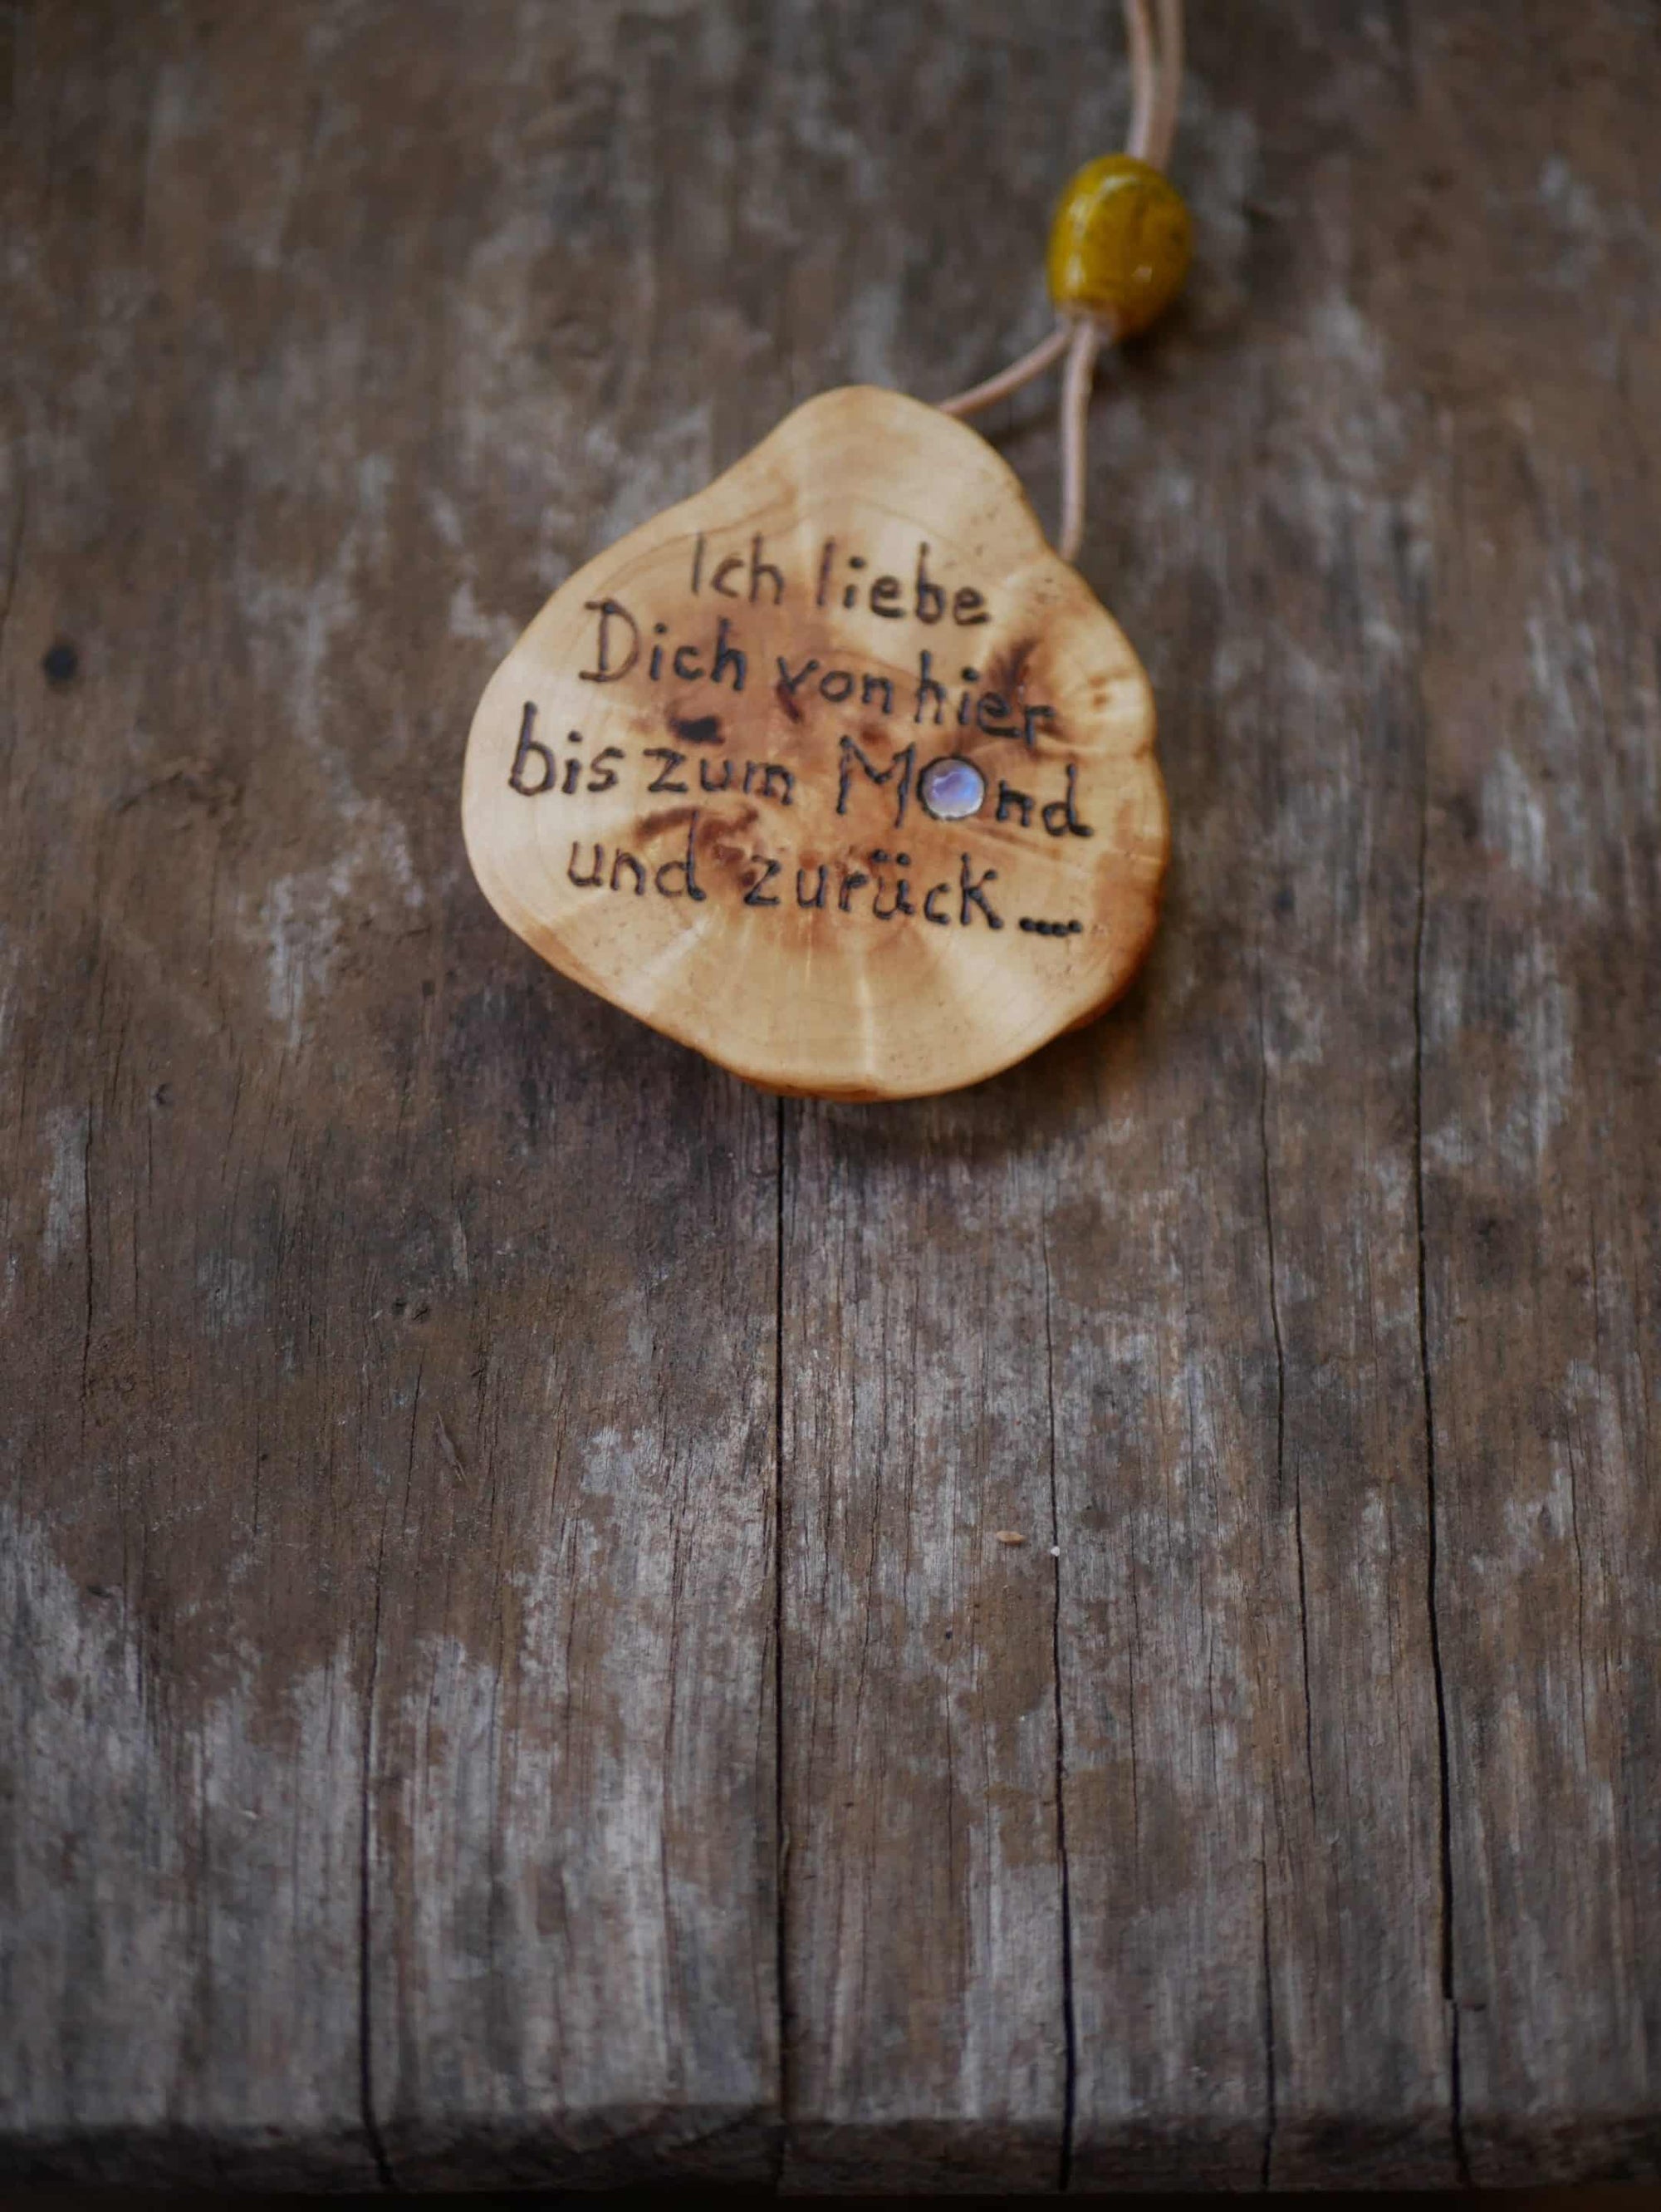 Ich liebe
Dich von hier
bis zum Mond
und zurück....